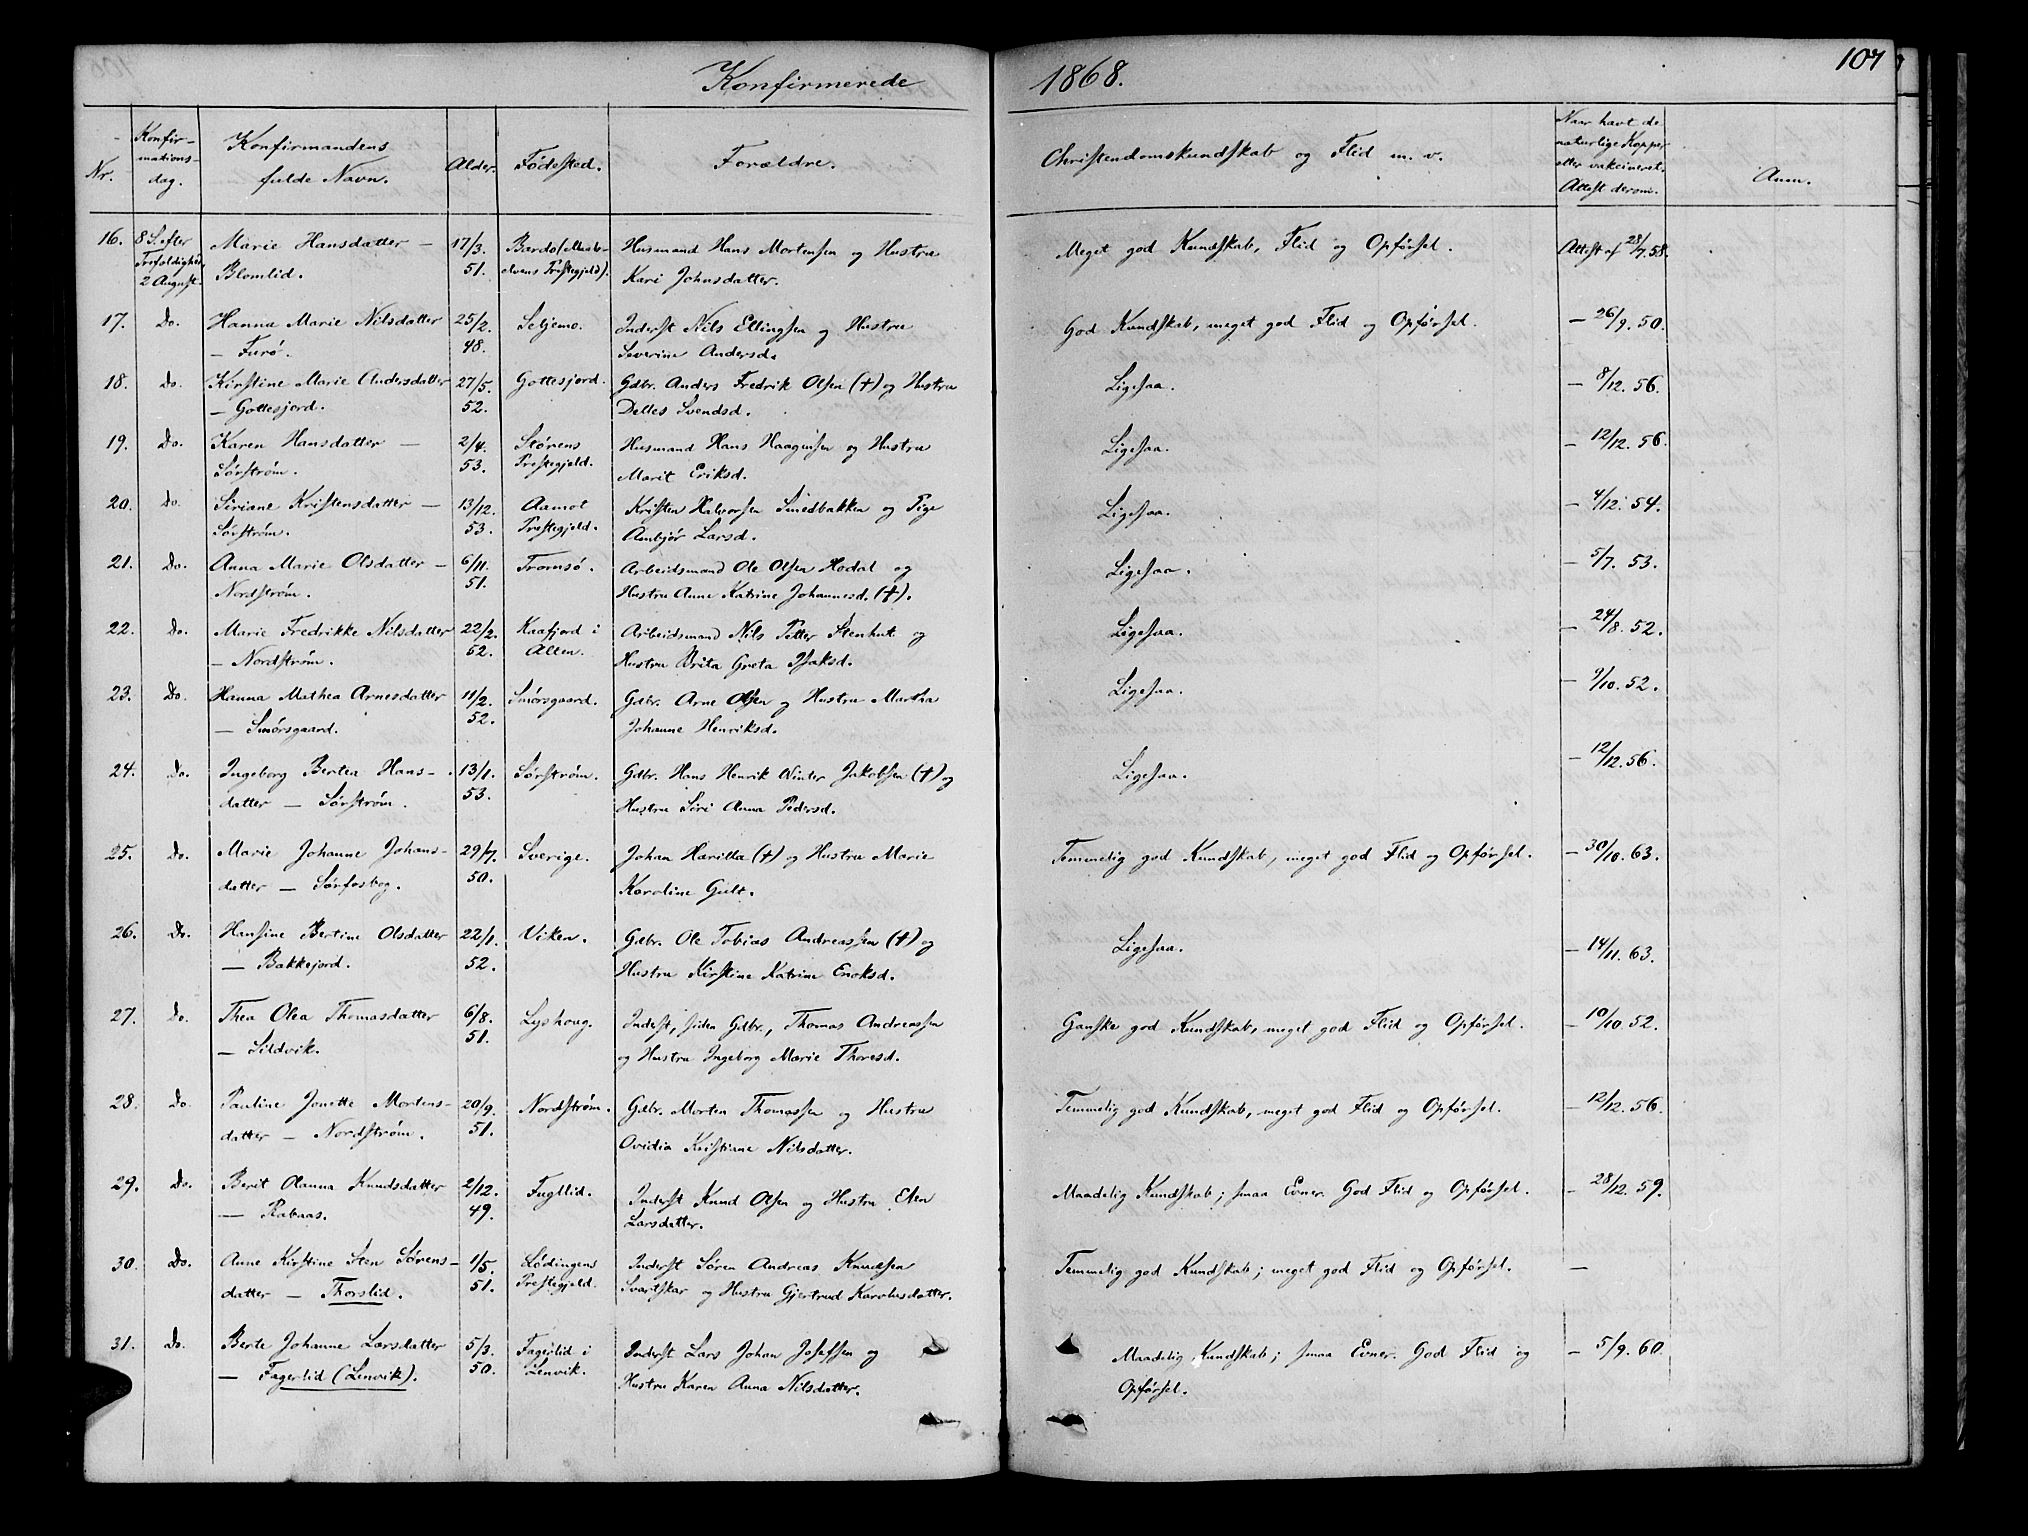 Konfirmerede 1868. 107
Nr. | Konfirmationsdag. | Konfirmandens fulde Navn. | Alder. | Fødested. | Forældre. | Christendomskundskab og Flid m. v. | Naar havt de naturlige Kopper eller vakcineret. Attest derom. | Anm.
16. | 8 S. efter Trefoldighed, 2 August. | Marie Hansdatter — Blomlid. | 17/3. 51. | Bardo Prestegjeld). | Husmand Hans Mortensen og Hustru Kari Johnsdatter. | Meget god Kundskab, Flid og Opførsel. | Attest af 28/7. 58.
17. | Do. | Hanna Marie Nilsdatter — Furø. | 25/2. 48. | Seljemo. | Inderst Nils Ellingsen og Hustru Severine Andersd. | God Kundskab, meget god Flid og Opførsel. | — 26/9. 50.
18. | Do. | Kirstine Marie Andersdatter — Gottesjord. | 27/5. 52. | Gottesjord. | Gdbr. Anders Fredrik Olsen (†) og Hustru Delles Svendsd. | Ligesaa. | — 8/12. 56.
19. | Do. | Karen Hansdatter — Sørstrøm. | 2/4. 53. | Størens Prestegjeld. | Husmand Hans Haagensen og Hustru Marit Eriksd. | Ligesaa. | — 12/12. 56.
20. | Do. | Siriane Kristensdatter — Sørstrøm. | 13/12. 53. | Aamot Prestegjeld. | Kristen Halvorsen Smedbakken og Pige Ambjør Larsd. | Ligesaa. | — 4/12. 54.
21. | Do. | Anna Marie Olsdatter — Nordstrøm. | 6/11. 51. | Tromsø. | Arbeidsmand Ole Olsen Hodal og Hustru Anne Katrine Johannesd. (†). | Ligesaa. | — 5/7. 53.
22. | Do. | Marie Fredrikke Nilsdatter — Nordstrøm. | 22/2. 52. | Kaafjord i Alten. | Arbeidsmand Nils Petter Stenhut og Hustru Brita Greta Isaksd. | Ligesaa. | — 24/8. 52.
23. | Do. | Hanna Mathea Arnesdatter — Smørsgaard. | 11/2. 52. | Smørsgaard. | Gdbr. Arne Olsen og Hustru Martha Johanne Henriksd. | Ligesaa. | — 9/10. 52.
24. | Do. | Ingeborg Bertea Hansdatter — Sørstrøm. | 13/1. 53. | Sørstrøm. | Gdbr. Hans Henrik Winter Jakobsen (†) og Hustru Siri Anna Pedersd. | Ligesaa. | — 12/12. 56.
25. | Do. | Marie Johanne Johansdatter — Sørfosbog. | 29/7. 50. | Sverige. | Johan Harilla (†) og Hustru Marie Karoline Gult. | Temmelig god Kundskab, meget god Flid og Opførsel. | — 30/10. 63.
26. | Do. | Hansine Bertine Olsdatter — Bakkejord. | 22/1. 52. | Viken. | Gdbr. Ole Tobias Andreassen (†) og Hustru Kirstine Katrine Enoksd. | Ligesaa. | — 14/11. 63.
27. | Do. | Thea Olea Thomasdatter — Sildvik. | 6/8. 51. | Lyshoug. | Inderst, siden Gdbr., Thomas Andreassen og Hustru Ingeborg Marie Thoresd. | Ganske god Kundskab, meget god Flid og Opførsel. | — 10/10. 52.
28. | Do. | Pauline Jonette Mortensdatter — Nordstrøm. | 20/9. 51. | Nordstrøm. | Gdbr. Morten Thomassen og Hustru Ovidia Kristiane Nilsdatter. | Temmelig god Kundskab, meget god Flid og Opførsel. | — 12/12. 56.
29. | Do. | Berit Olanna Knudsdatter — Rabaas. | 2/12. 49. | Fugllid. | Inderst Knud Olsen og Hustru Elen Larsdatter. | Maadelig Kundskab; smaa Evner. God Flid og Opførsel. | — 28/12. 59.
30. | Do. | Anne Kirstine Sten Sørensdatter — Thorslid. | 1/5. 51. | Lødingens Prestegjeld. | Inderst Søren Andreas Knudsen Svartskar og Hustru Gjertrud Karolusdatter. | Temmelig god Kundskab; meget god Flid og Opførsel. | —
31. | Do. | Berte Johanne Larsdatter — Fagerlid (Lenvik). | 5/3. 50. | Fagerlid i Lenvik. | Inderst Lars Johan Josefsen og Hustru Karen Anna Nilsdatter. | Maadelig Kundskab; smaa Evner. God Flid og Opførsel. | — 5/9. 60.